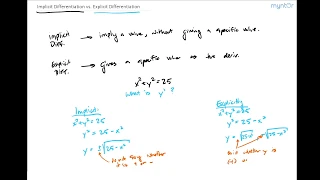 Implicit Differentiation vs. Explicit Differentiation
mynt0r
Implicit Diff. → imply a value, without giving a specific value.
Explicit Diff. → gives a specific value to the deriv.
x²+y²=25
What is y'?
Implicit:
x²+y²=25
y²=25-x²
y=±√25-x²
Explicitly
x²+y²=25
y²=25-x²
y=
whether y is